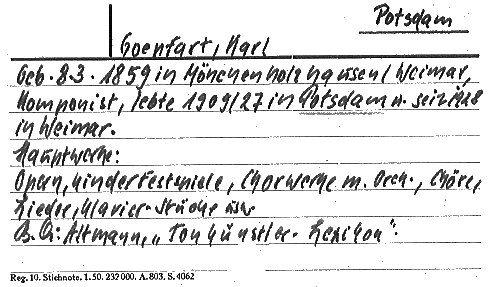 Potsdam
Goepfart, Karl
Geb. 8.3.1859 in Mönchenholzhausen / Weimar,
Komponist, lebte 1909/27 in Potsdam u. seit 1928
in Weimar.
Hauptwerke:
Opern, Kinderfestspiele, Chorwerke m. Orch., Chöre,
Lieder, Klavier-Stücke usw.
B. Q: Altmann, „Tonkünstler-Lexikon".
Reg. 10. Stichnote. 1. 50. 232000. A. 803. S. 4062